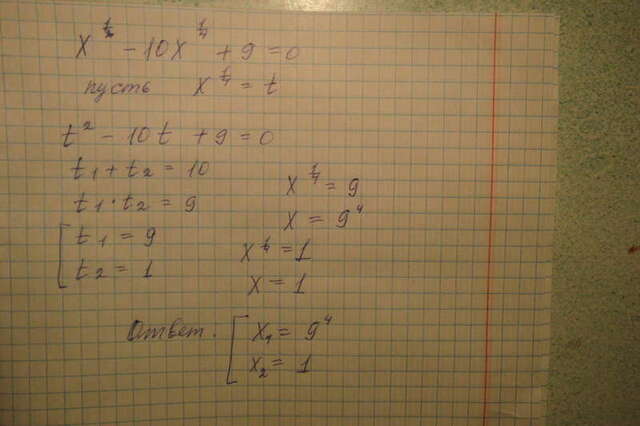 x^(1/2) - 10x^(1/4) + 9 = 0
пусть x^(1/4) = t
t² - 10t + 9 = 0
t₁ + t₂ = 10
t₁ · t₂ = 9
[ t₁ = 9
t₂ = 1
x^(1/4) = 9
x = 9⁴
x^(1/4) = 1
x = 1
Ответ. [ x₁ = 9⁴
x₂ = 1